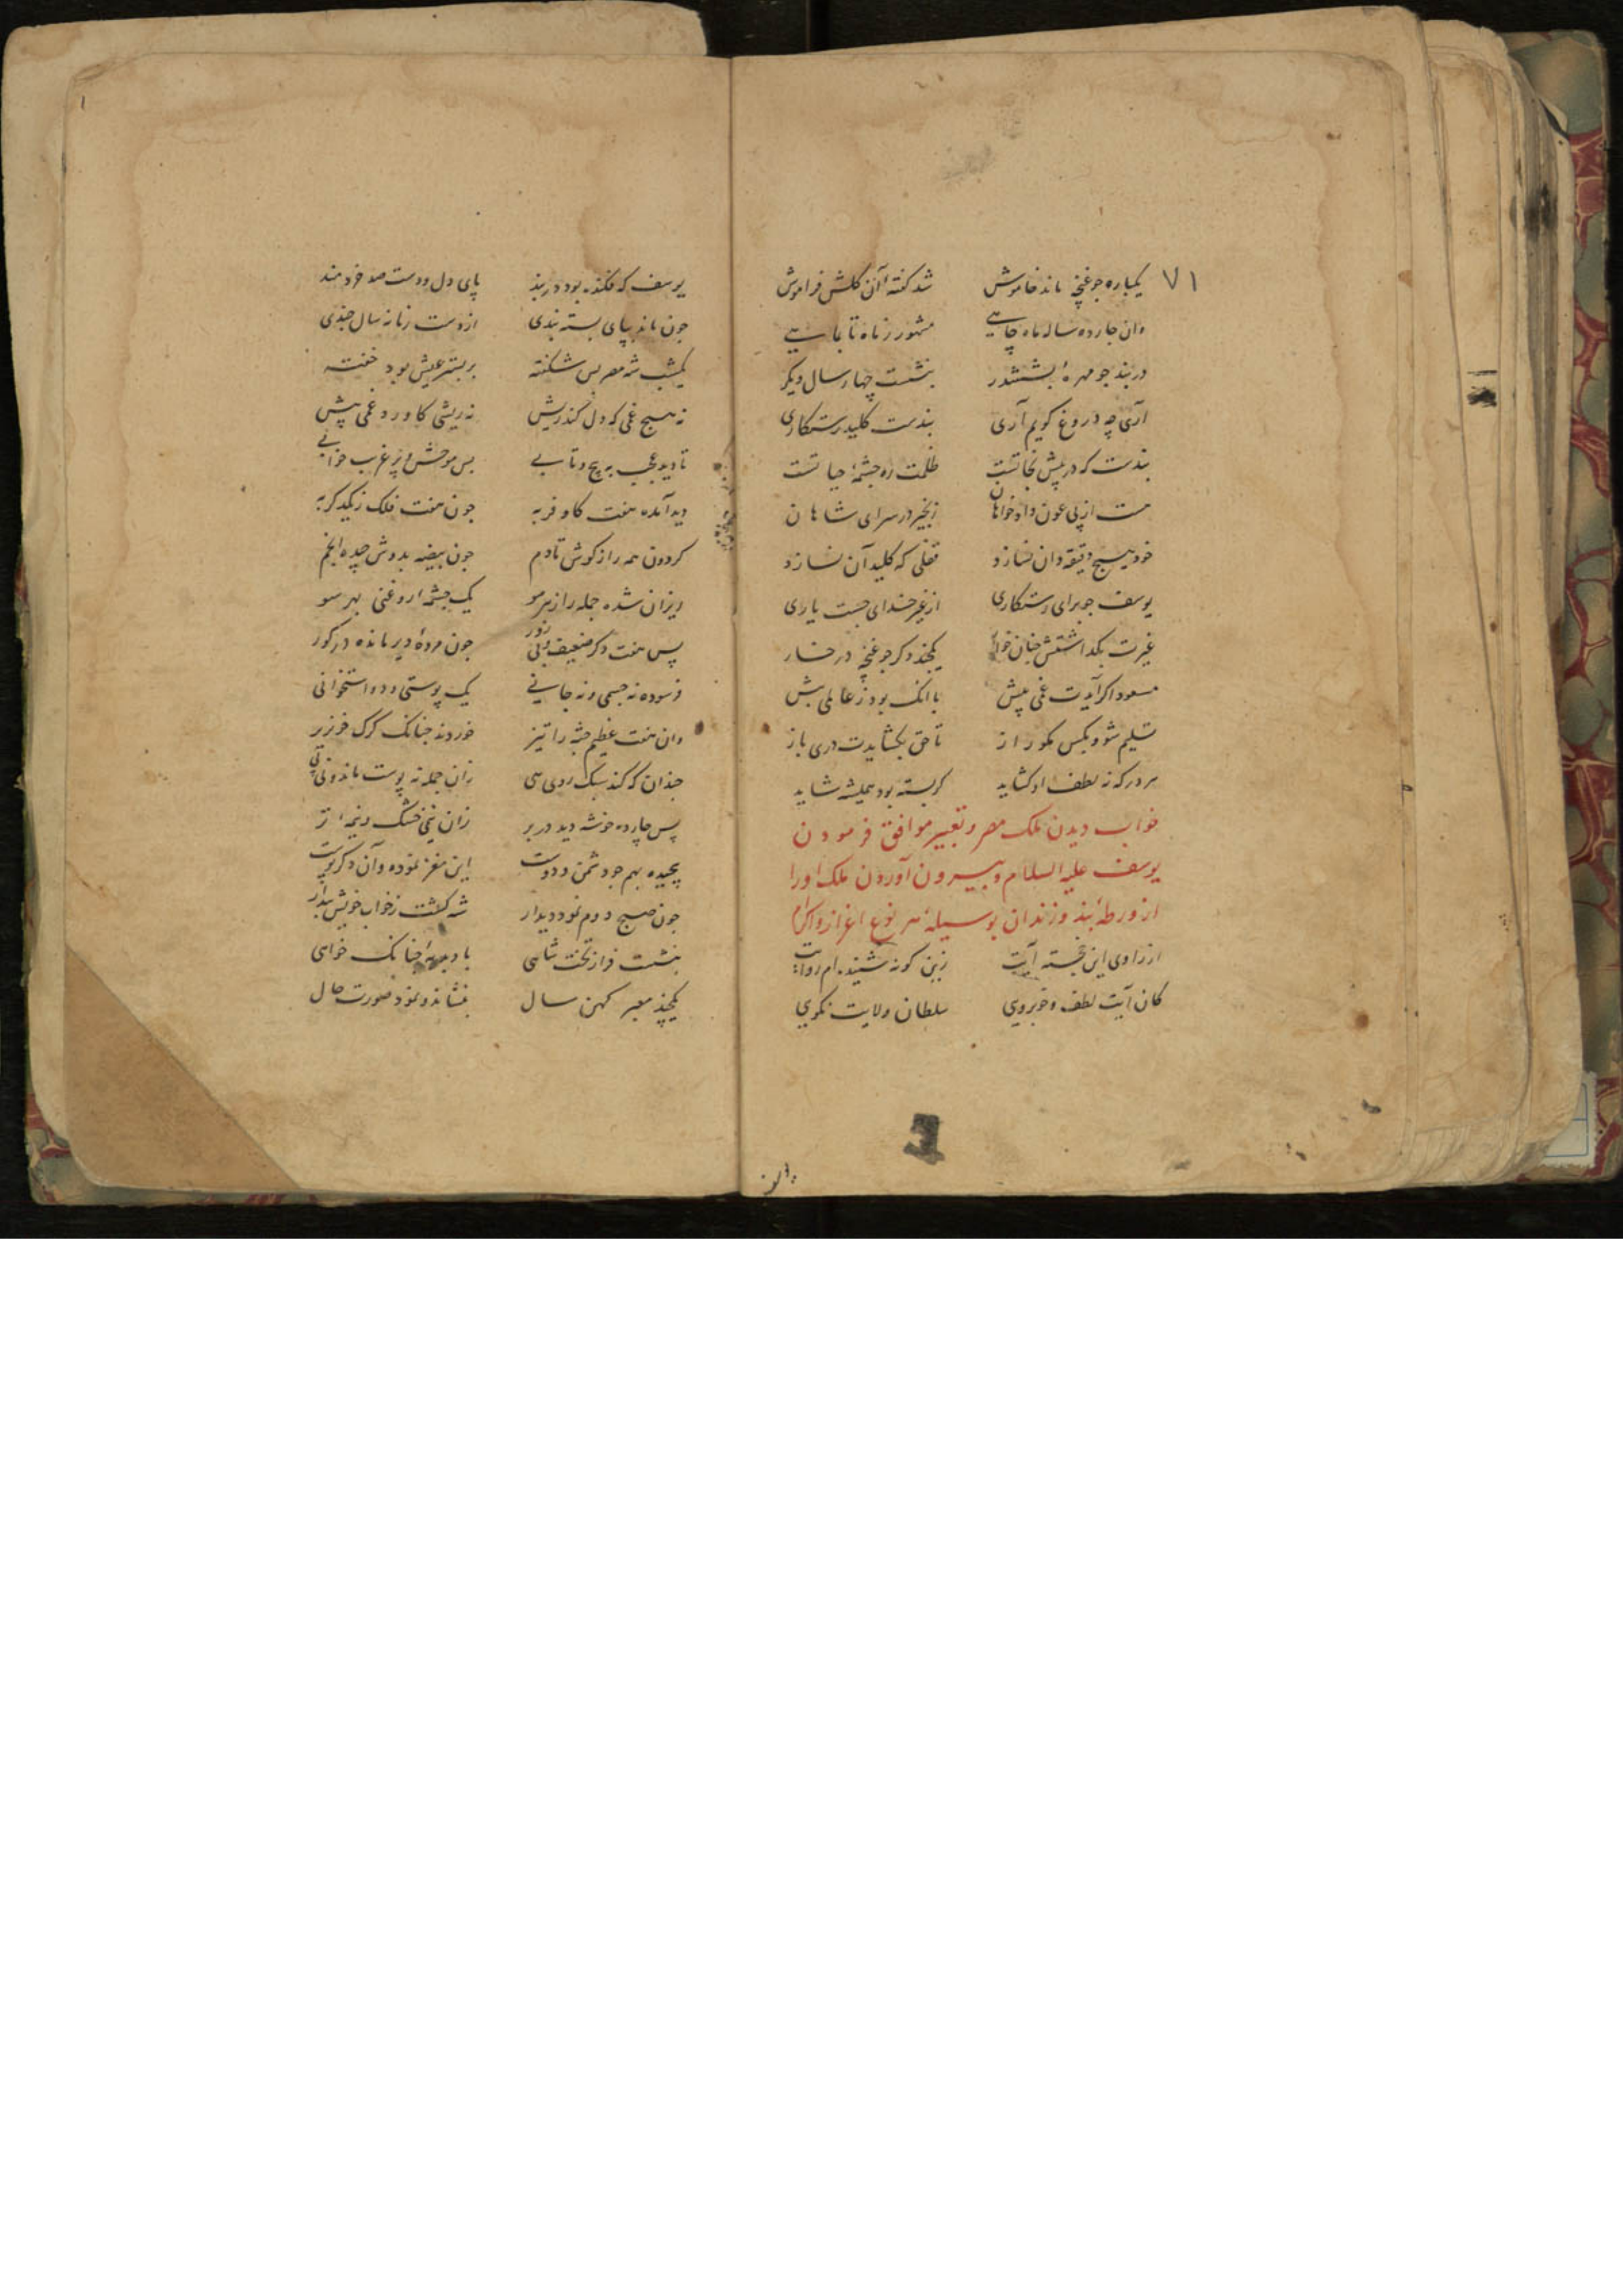 ۷۱
یکباره جو غنچه ماند خاموش شد گفته آن کلش فراموش
وان جارده ساله ماه جاهی مشهور ز ماه تا بماهی
در بند جو مهره بششدر بنشست چهار سال دیکر
آری چه دروغ کویم آری بندست کلید رستکاری
بندست که در پیش نجاتست ظلمت ره جشمهٔ حیاتست
هست از پی عون دادخواهان زنجیر در سرای شاهان
خود هیچ دقیقه دان نسازد قفلی که کلید آن نسازد
یوسف جو برای رستکاری از غیر خدای جست یاری
غیرت بکداشتش جنان خوار یکجند دکر جو غنچه در خار
مسعود اکر آیدت غمی پیش با انک بود ز عالمی بیش
تسلیم شو و بکس مکو راز تا حق بکشایدت دری باز
هر در که نه لطف او کشاید کر بسته بود همیشه شاید
خواب دیدن ملک مصر و تعبیر موافق فرمودن
یوسف علیه السلام و بیرون آوردن ملک او را
از ورطهٔ بند و زندان بوسیلهٔ هر نوع اعزاز و اکرام
از راوی این خجسته آیت زین کونه شنیده‌ام روایت
کان آیت لطف و خوبرویی سلطان ولایت نکویی
یوسف که فکنده بود در بند پای دل و دست صد خردمند
جون ماند بپای بسته بندی از دست زمانه سال جندی
یکشب شه مصر بس شکفته بر بستر عیش بود خفته
نه هیچ غمی که دل کند ریش نه ریشی کاورد غمی پیش
تا دید عجب به پیچ و تابی بس موحش و پر غرب خوابی
دید آمده هفت کاو فربه جون هفت فلک ز یکدکر به
کردون همه را ز کوش تا دم جون بیضه بدوش جیده انجم
ریزان شده جمله را ز هر مو یک جشمه از روغنی بهر سو
پس هفت دکر ضعیف و بی زور جون مردهٔ دیر مانده در کور
فرسوده نه جسمی و نه جانی یک پوستی و دو استخوانی
وان هفت عظیم جثه را تیز خوردند جنانک کرک خونریز
جندان که کند سبک روی طی زان جمله نه پوست ماند و نی پی
پس چارده خوشه دید در بر زان نیمی خشک و نیمهٔ تر
پیچیده بهم جو دشمن و دوست این مغز نموده وان دکر پوست
جون صبح دوم نمود دیدار شه کشت ز خواب خویش بیدار
بنشست فراز تخت شاهی با دبدبهٔ جنانک خواهی
یکچند معبر کهن سال بنشاند و نمود صورت حال